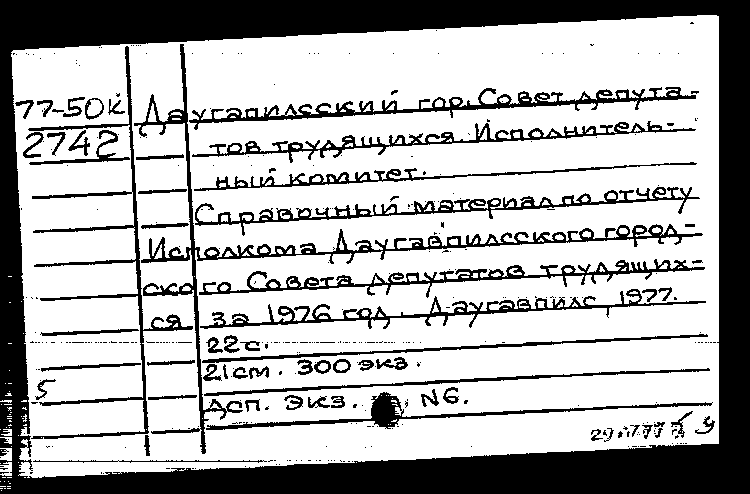 77-50к Даугапилсский гор. Совет депута-
2742 тов трудящихся. Исполнитель-
ный комитет.
Справочный материал по отчету
Исполкома Даугавпилсского город-
ского Совета депутатов трудящих-
ся за 1976 год. Даугавпилс, 1977.
22 с.
21 см. 300 экз.
5
Дсп. Экз. N6.